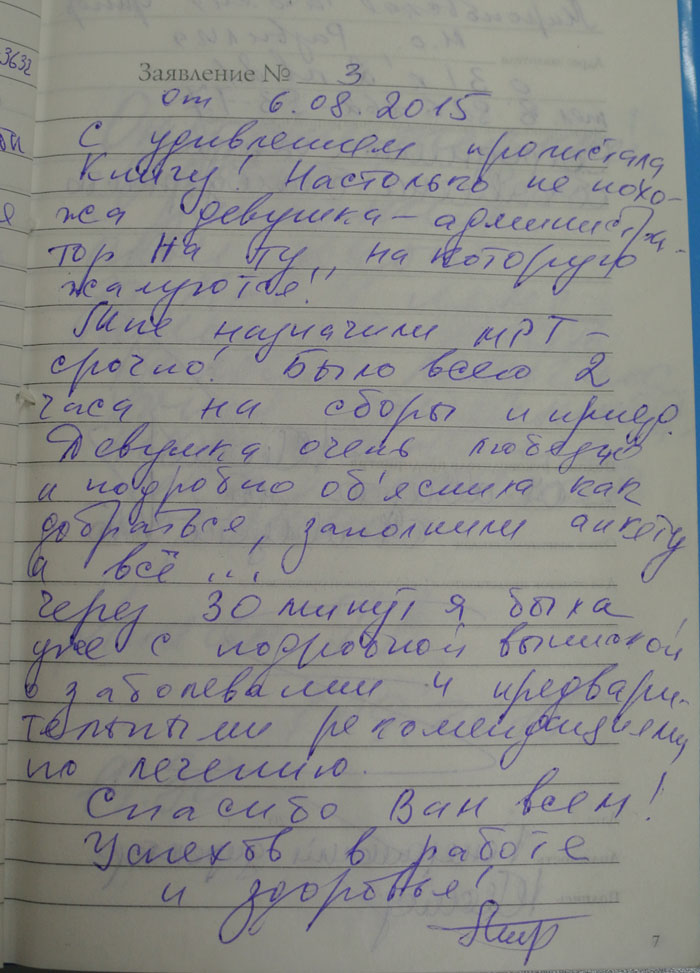 3632
Заявление № 3
от 6.08.2015
С удивлением прочистала
Книгу! Настолько не похо-
жа девушка-администра-
тор на ту, на которую
жалуются!!
Мне назначили МРТ-
срочно! Было всего 2
часа на сборы и приезд.
Девушка очень любезно
и подробно об'яснила как
добраться, заполнили анкету
и всё ...
Через 30 минут я была
уже с подробной выпиской
о заболевании и предвари-
тельными рекомендациями
по лечению.
Спасибо Вам всем!
Успехов в работе
и здоровья!
7